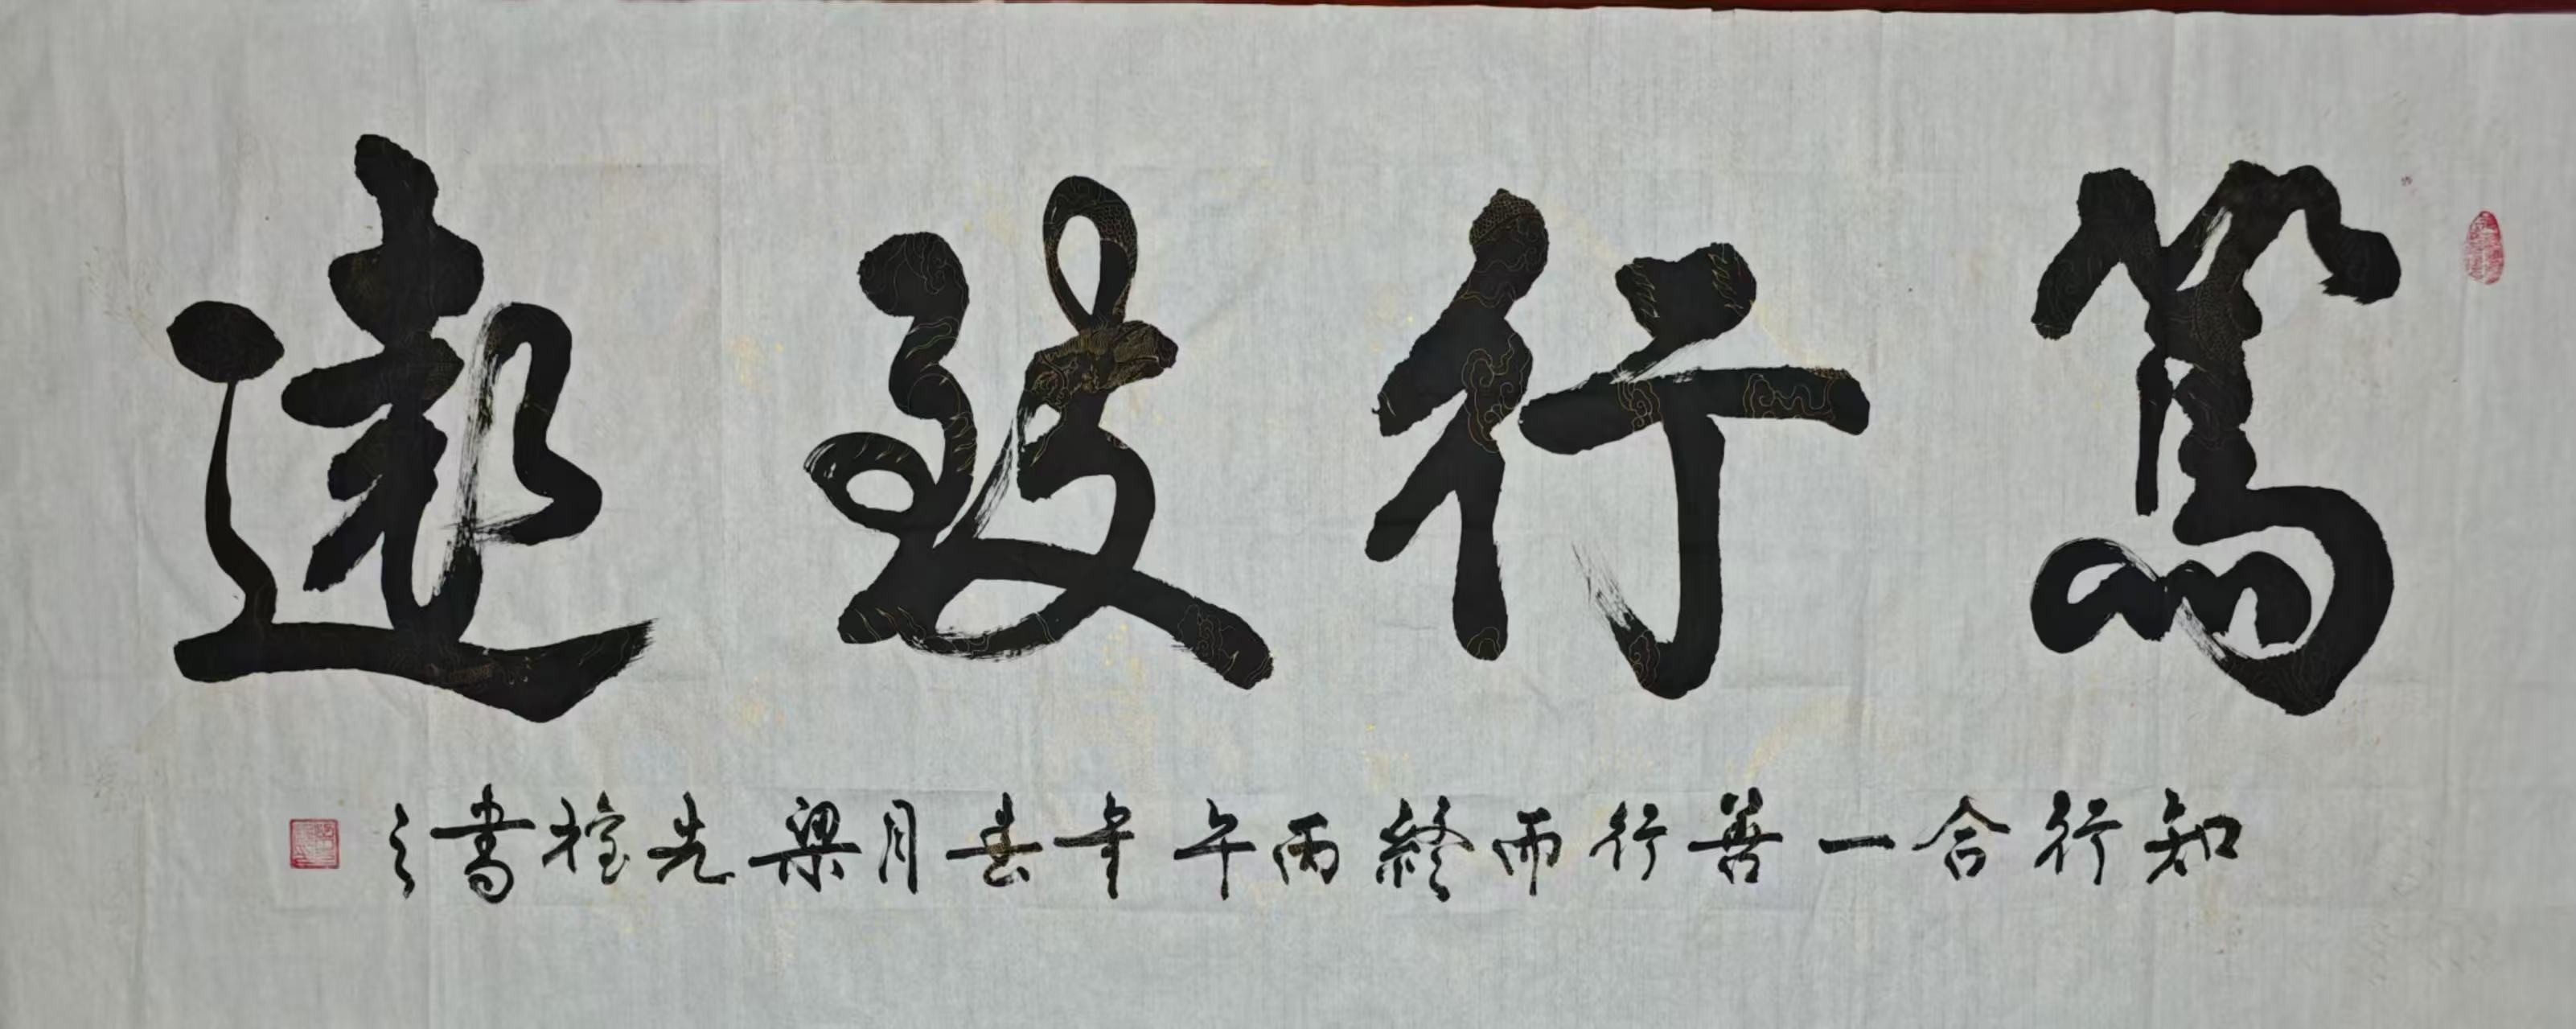 篤行致遠
知行合一善行而終丙午年春月梁先栓書之